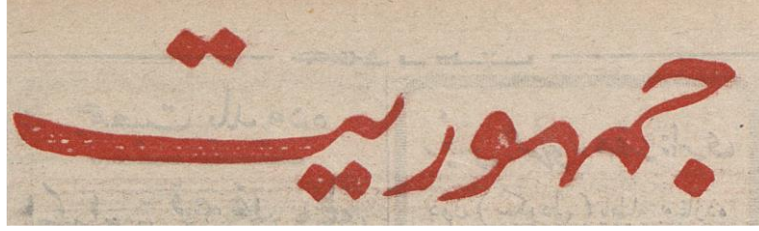 جمهوریت